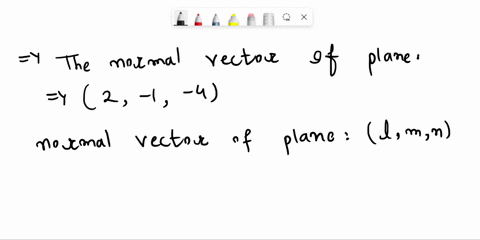 => The normal vector of plane.
=> (2, -1, -4)
normal vector of plane : (l, m, n)